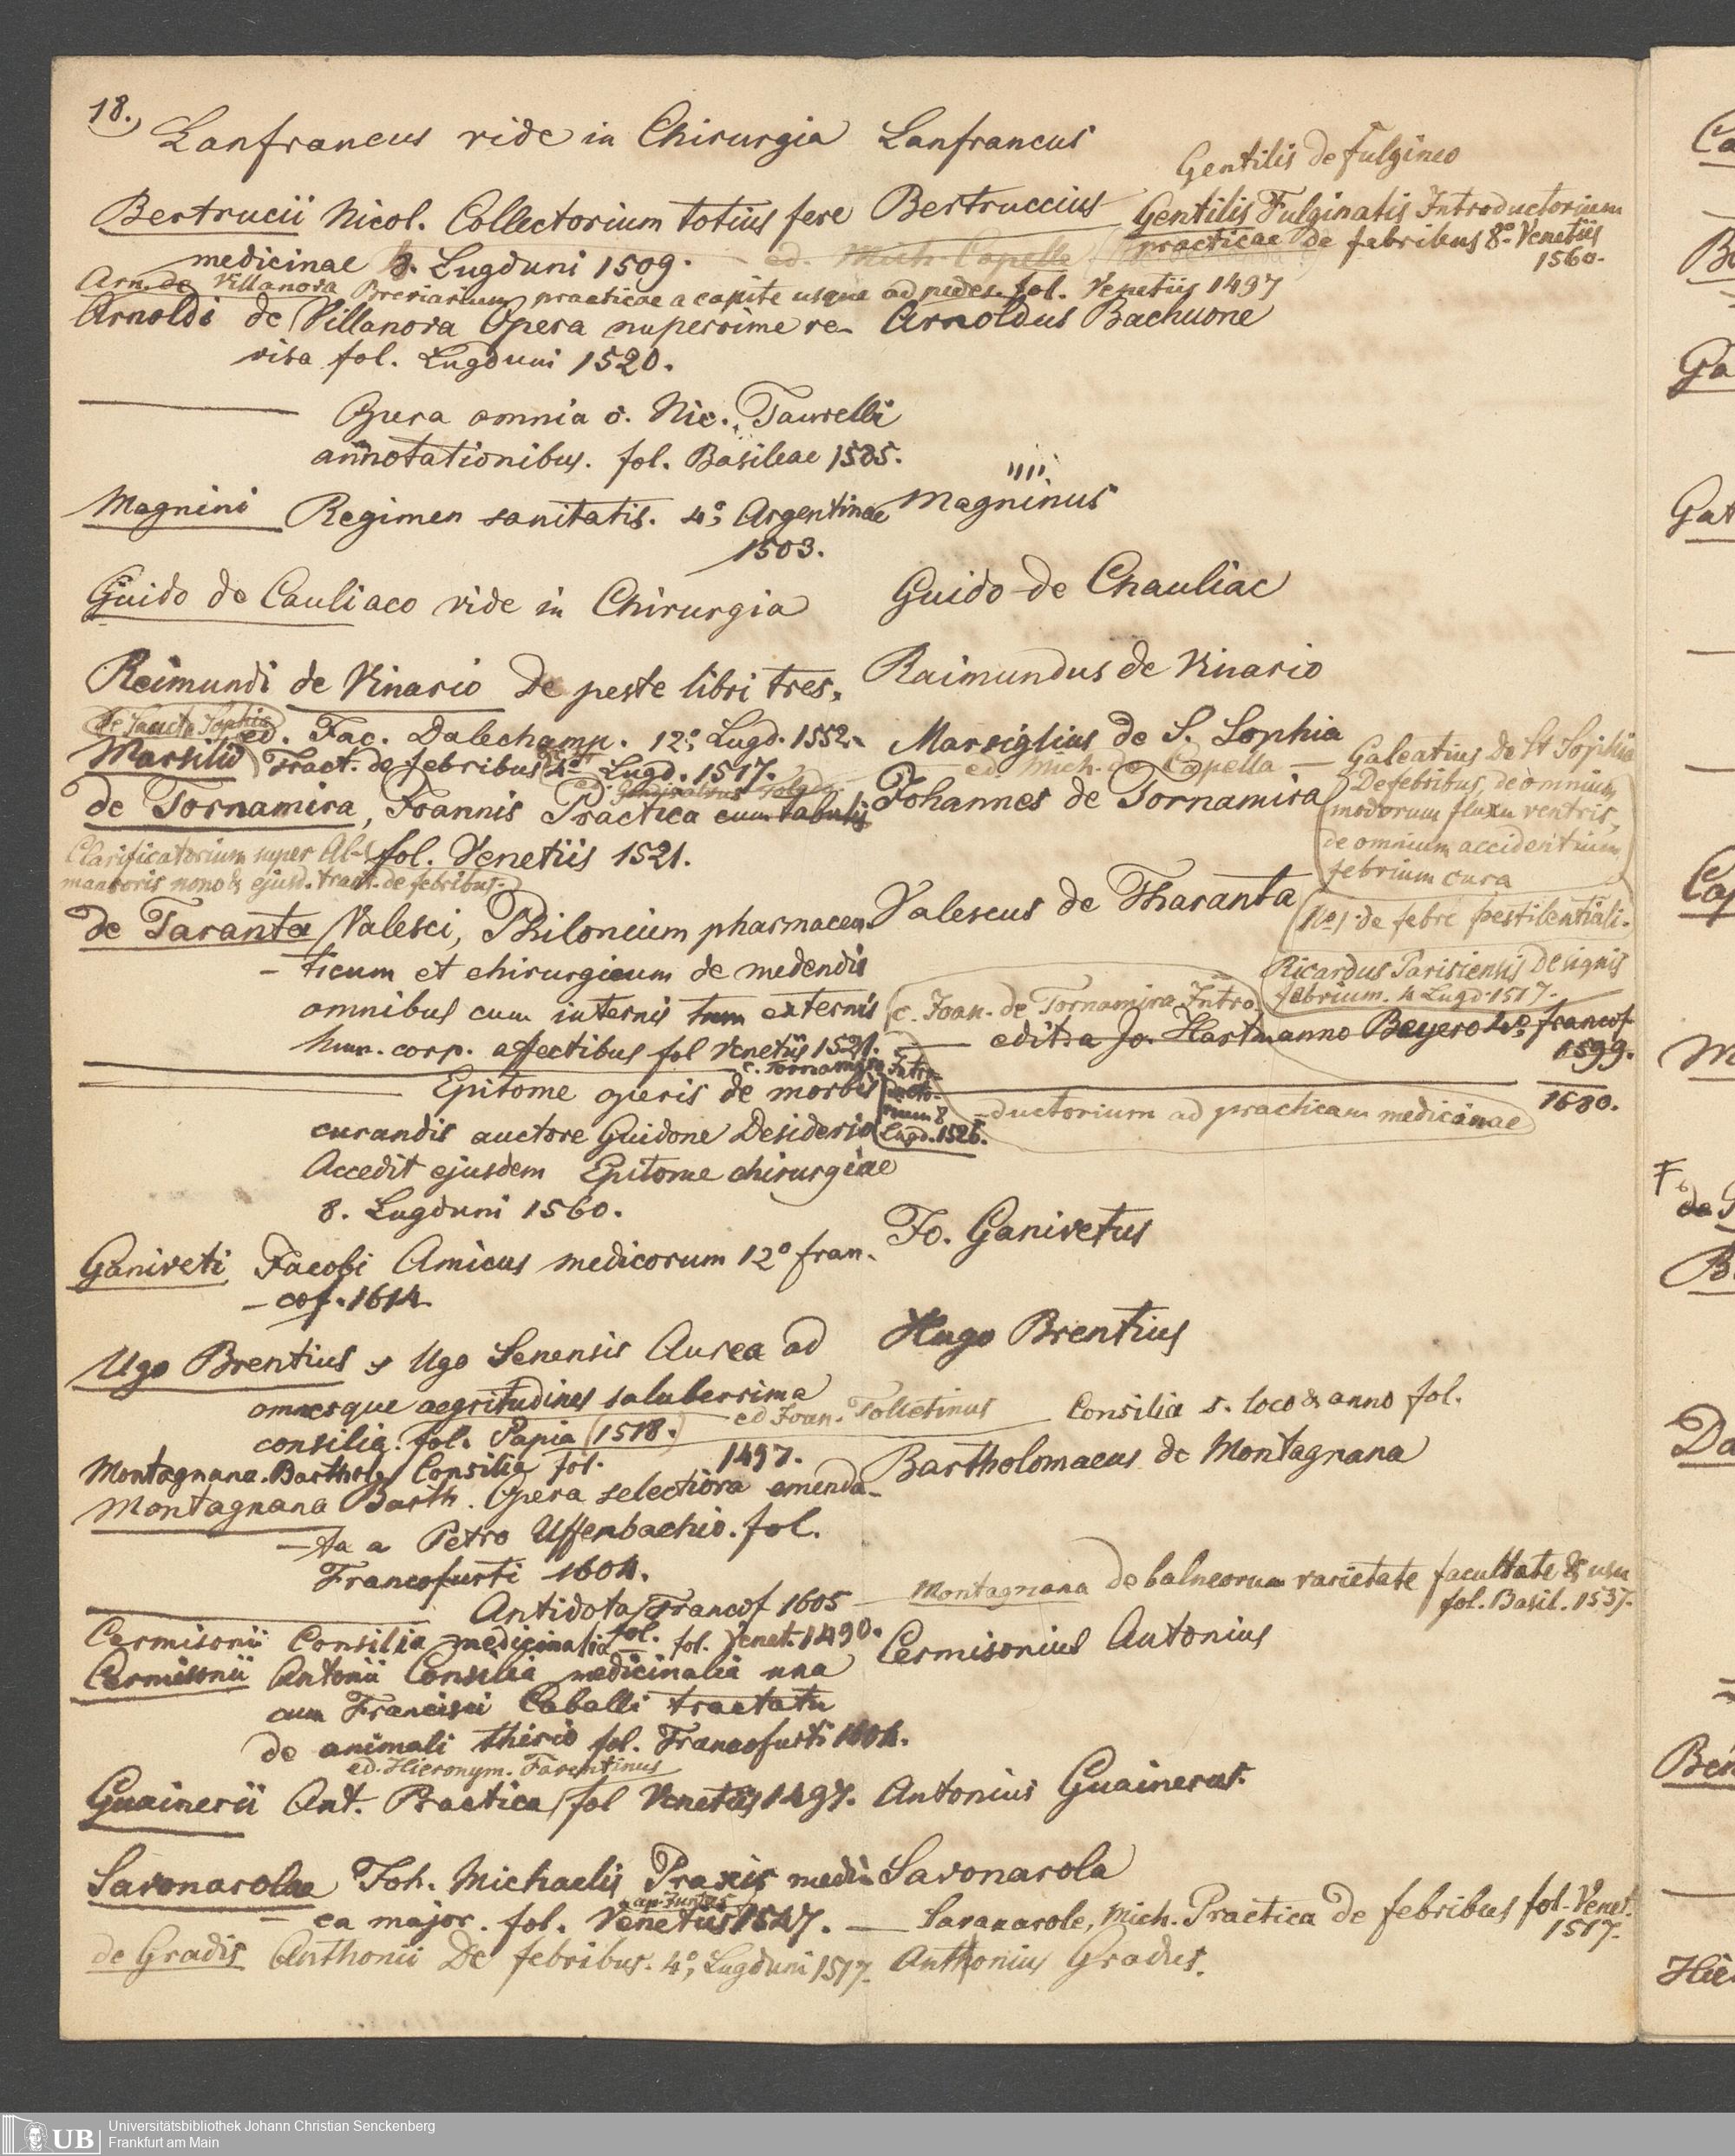 18.
Lanfrancus vide in Chirurgia Lanfrancus
Gentilis de Fulgineo
Bertrucii Nicol. Collectorium totius fere Bertruccius Gentilis Fulginatis Introductorium
medicinae 8. Lugduni 1509. ed. Mich. Capella practicae de febribus 8o Venetiis
1560.
Arn. de Villanova Breviarium practicae a capite usque ad pedes. fol. Venetiis 1497
Arnoldi de Villanova Opera nuperrime re- Arnoldus Bachuone
visa fol. Lugduni 1520.
Opera omnia c. Nic. Taurelli
annotationibus. fol. Basileae 1585.
Magnini Regimen sanitatis. 4o, Argentinae Magninus
1503.
Guido de Cauliaco vide in Chirurgia Guido de Chauliac
Reimundi de Vinario De peste libri tres. Raimundus de Vinario
de Sancta Sophia ed. Jac. Dalechamp. 12o, Lugd. 1552. Marsiglius de S. Sophia
Marsilii Tract. de febribus 4o Lugd. 1517. ed. Mich. de Capella — Galeatius de St Sophia
De febribus, de omnium
modorum fluxu ventris,
de omnium accidentium
febrium cura
de Tornamira, Joannis Practica cum tabulis Johannes de Tornamira
Clarificatorium super Al- fol. Venetiis 1521.
mansoris nono & ejusd. tract. de febribus.
de febre pestilentiali.
de Taranta Valesci, Philonium pharmaceu Valescus de Tharanta
Ricardus Parisiensis De signis
febrium. 4 Lugd. 1517.
- ticum et chirurgicum de medendis
omnibus cum internis tum externis c. Joan. de Tornamira Intro-
hum. corp. affectibus fol Venetiis 1521. — edit. a Jo. Hartmanno Beyero 4o, francof.
1599.
c. Tornamira Intro-
ducto-
rium 8
Lugd. 1526.
1680.
Epitome operis de morbis
-ductorium ad practicam medicinae
curandis auctore Guidone Desiderio
Accedit ejusdem Epitome chirurgiae
8. Lugduni 1560.
Ganiveti Jacobi Amicus medicorum 12o fran- Jo. Ganivetus
- cof. 1614.
Ugo Brentius s Ugo Senensis Aurea ad Hugo Brentius
omnesque aegritudines saluberrima
ed Joan. Tolletinus — Consilia s. loco & anno fol.
consilia. fol. Papia (1518.)
Montagnana. Barthol. Consilia fol. 1497. Bartholomaeus de Montagnana
Montagnana Barth. Opera selectiora emenda-
- ta a Petro Uffenbachio. fol.
Francofurti 1604.
Antidota Francof 1605 — Montagnana de balneorum varietate facultate & usu
fol. fol. Basil. 1537.
Cermisonii Consilia medicinalia fol. Venet. 1490. Cermisonius Antonius
Cermisonii Antonii Consilia medicinalia una
cum Francisci Caballi tractatu
de animali thirio fol. Francofurti 1604.
ed. Hieronym. Farentinus
Guainerii Ant. Practica fol Venetiis 1497. Antonius Guainerus.
Savonarolae Joh. Michaelis Praxis medi- Savonarola
ap. Juntas
ca major. fol. Venetiis 1547. — Savanarole, Mich. Practica de febribus fol. Venet.
1517.
de Gradis Anthonii De febribus. 4o, Lugduni 1517. Anthonius Gradus.
UB
Universitätsbibliothek Johann Christian Senckenberg
Frankfurt am Main